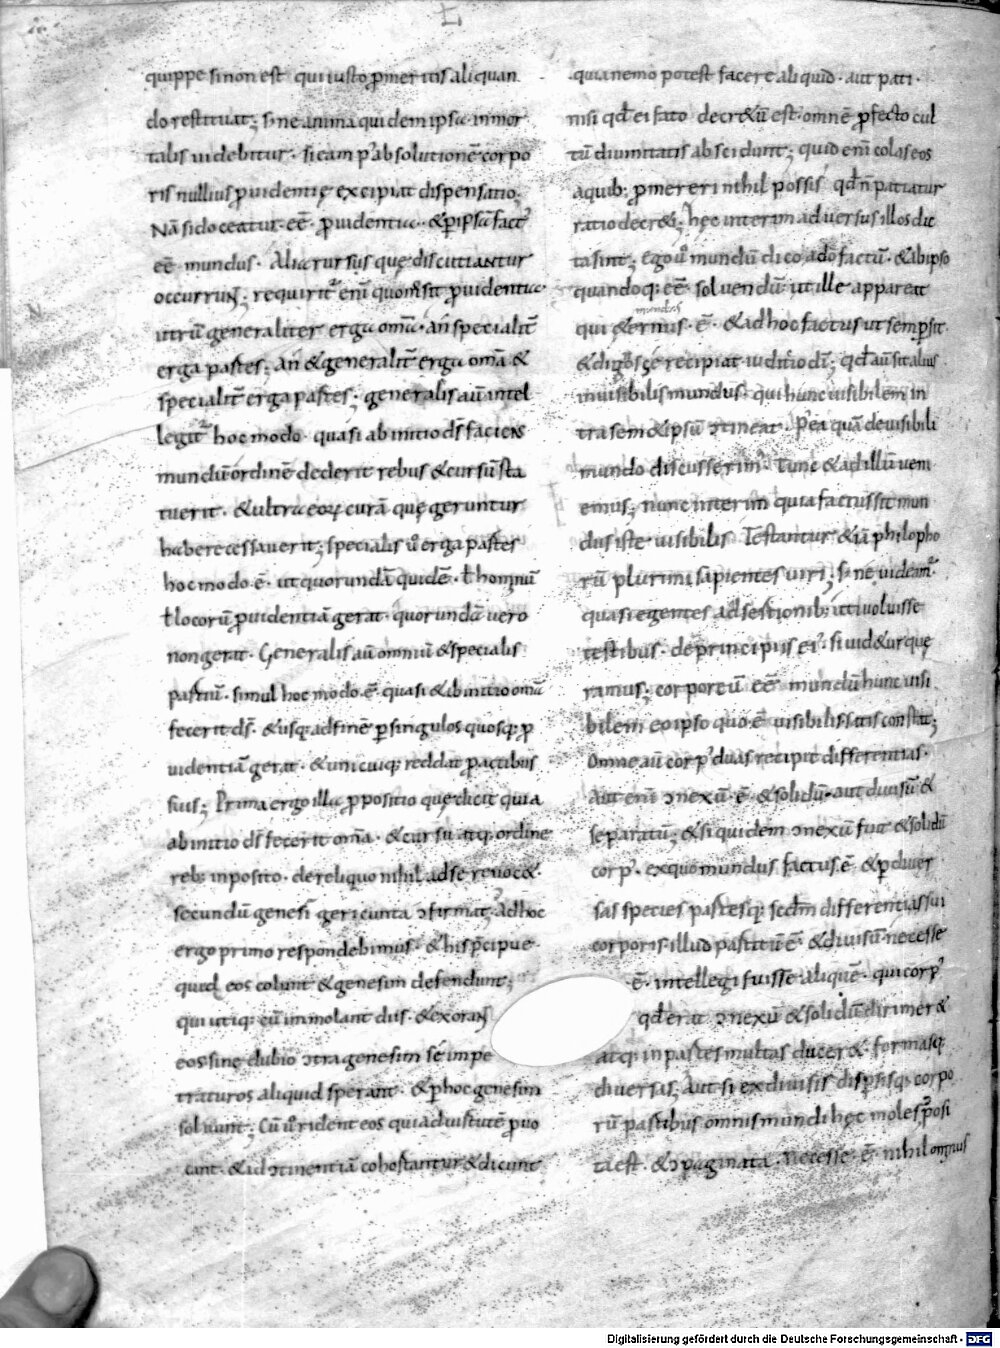 quippe si non est qui iusto ꝓ meritis aliquan
do restituat; sine anima quidem ipsa inmor
talis uidebitur · si eam p' absolutionē corpo
ris nullius ꝓuidentię excipiat dispensatio;
Nā si doceatur eē ꝓuidentia · & ꝑ ipsā fact'
eē mundus · Alia rursus que discutiantur
occurrunt; requirit' enī quom̄ sit ꝓuidentia ·
utrū generaliter erga om̄a · an specialit̄
erga partes; an & generalit̄ erga om̄a &
specialit̄ erga partes; generalis aū intel
legit' hoc modo · quasi ab initio ds̄ faciens
mundū ordinē dederit rebus & cursū sta
tuerit · & ultra eoꝝ curā quę geruntur
habere cessauerit; specialis u° erga partes
hoc modo · ē · ut quorundā quidē · ł hominū
ł locorū ꝓuidentiā gerat · quorundā uero
non gerat · Generalis aū omniū & specialis
partiū · simul hoc modo · ē · quasi & ab initio om̄a
fecerit ds̄ · & usq; ad finē ꝑ singulos quosq; ꝓ
uidentiā gerat · & unicuiq; reddat ꝓ actibus
suis; Prima ergo illa ꝓpositio que dicit quia
ab initio ds̄ fecerit om̄a · & cursū atq; ordine
reb; inposito · de reliquo nihil ad se reuoc& ·
secundū genesī geri cunta ɔfirmat; adhoc
ergo primo respondebimus · & his p̄cipue ·
quid eos colunt & genesim defendunt;
qui utiq; cū immolant diis · & exorant
eos sine dubio ɔtra genesim se impe
traturos aliquid sperant · & ꝑ hoc genesim
soluunt; Cū u° rident eos qui ad uirtutē ꝓuo
cant · & id ɔtinentiā cohortantur & dicunt
quia nemo potest facere aliquid · aut pati ·
nisi qd̄ ei fato decr&ū est · omnē ꝓfecto cul
tū diuinitatis abscidunt; quid enī colas eos
a quib; ꝓmereri nihil possis qd̄ n̄ patiatur
ratio decr&i; hęc interim aduersus illos dic
ta sint; Ego u° mundū dico a dō factū · & ab ipso
quandoq; eē soluendū ut ille appareat
mundus
qui &ernus · ē · & ad hoc factus ut semp sit ·
& dignos se recipiat iuditio dī; qd̄ aū sit alius
inuisibilis mundus · qui hunc uisibilem in
tra sem&ipsū ɔtineat · P'ea quā de uisibili
mundo discusserim' · Tunc & ad illū ueni
emus; nunc interim quia factus sit mun
dus iste uisibilis Testantur & iā philopho
rū plurimi sapientes uiri; sine uideam'
quasi egentes adsertionib; uti uoluisse
testibus · de principiis ei' · si uid&ur quę
ramus; corporeū eē mundū hunc uisi
bilem eo ipso quo · ē uisibilis satis constat;
Omne aū corp' duas recipit differentias ·
Aut enī ɔnexū · ē · & solidū · aut diuisū &
separatū; & si quidem ɔnexū fuit & solidū
corp' · ex quo mundus factus · ē · & ꝑ diuer
sas species partesq; secd̄m differentias sui
corporis illud partitū ē · & diuisū · necesse
· ē · intellegi fuisse aliquē · qui corp'
qd̄ erat ɔnexū & solidū dirimer&
atq; in partes multas ducer& · formasq
diuersas; Aut si ex diuisis dispsisq; corpo
rū partibus omnis mundi hęc moles ɔposi
ta est · & ɔpaginata · necesse · ē · nihilominus
Digitalisierung gefördert durch die Deutsche Forschungsgemeinschaft - DFG